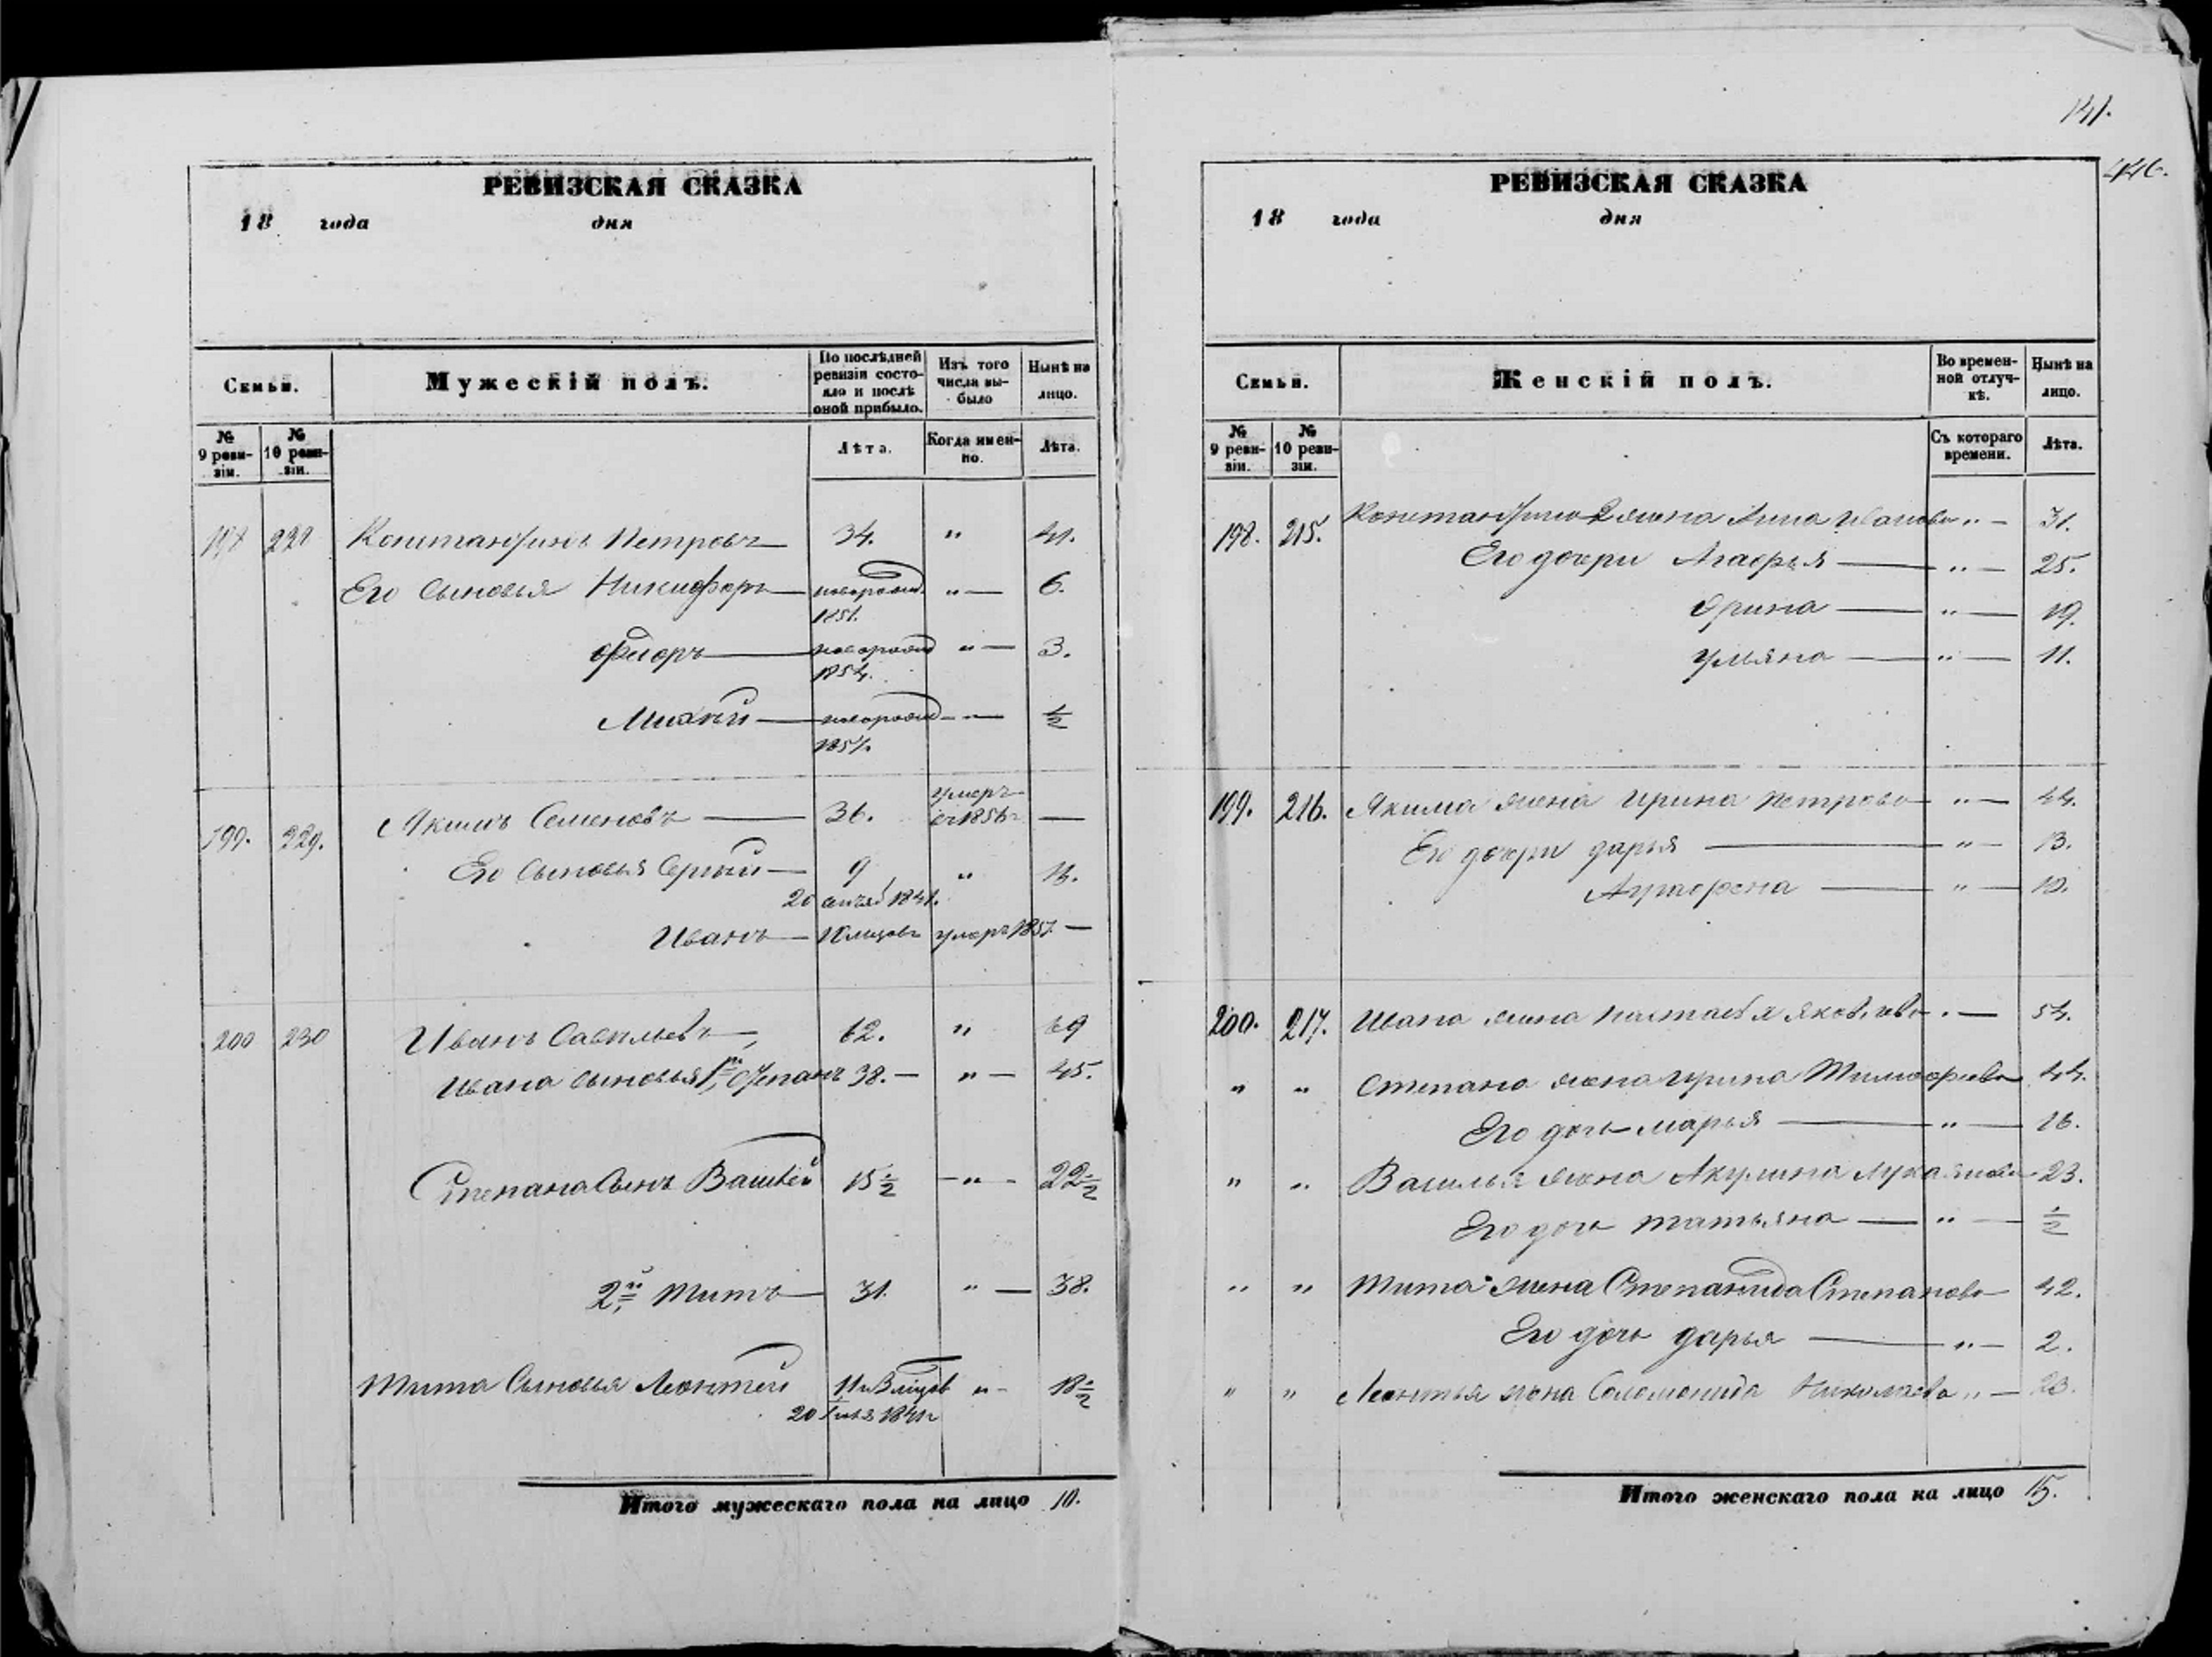 РЕВИЗСКАЯ СКАЗКА
18 года дня
Семьи.
Мужескій полъ.
По послѣдней ревизіи состояло и послѣ оной прибыло.
Изъ того числа выбыло
Нынѣ на лицо.
№ 9 ревизіи.
№ 10 ревизіи.
Лѣта.
Когда именно.
Лѣта.
198 228 Константинъ Петровъ 34. " 41.
Его Сыновья Никифоръ новорожд. " 6.
1851.
Фиоръ новорожд " 3.
1854.
Михей новорожд " 1/2
1857.
199. 229. Якимъ Семеновъ 36. умеръ 1856
Его Сыновья Сергий 9 "
20 1841.
Иванъ умеръ 1857
200 230 Иванъ Савельевъ 62. " 69
Ивана сыновья 1й Степанъ 38. " 45.
Степана Сынъ Василей 15 1/2 " 22 1/2
2й Титъ 31. " 38.
Тита Сыновья Леонтей 11 " 18 1/2
20
Итого мужескаго пола на лицо 10.
141.
446.
РЕВИЗСКАЯ СКАЗКА
18 года дня
Семьи.
Женскій полъ.
Во временной отлучкѣ.
Нынѣ на лицо.
№ 9 ревизіи.
№ 10 ревизіи.
Съ котораго времени.
Лѣта.
198. 215. Константина 2 жена Анна Иванова " 31.
Его дочри Агафья " 25.
Орина " 19.
Ульяна " 11.
199. 216. Якима жена Ирина Петрова " 44.
Его дочри дарья " 13.
Аграфена " 10.
200. 217. Ивана жена Настасья Яковлева 54.
" " Степана жена Ирина Тимофеева 44.
Его дочь марья " 16.
" " Василья жена Акулина Лукьянова 23.
Его дочь татьяна " 1/2
" " Тита жена Степанида Степанова 42.
Его дочь дарья " 2.
" " Леонтья жена Соломонида Николаева " 23.
Итого женскаго пола на лицо 15.